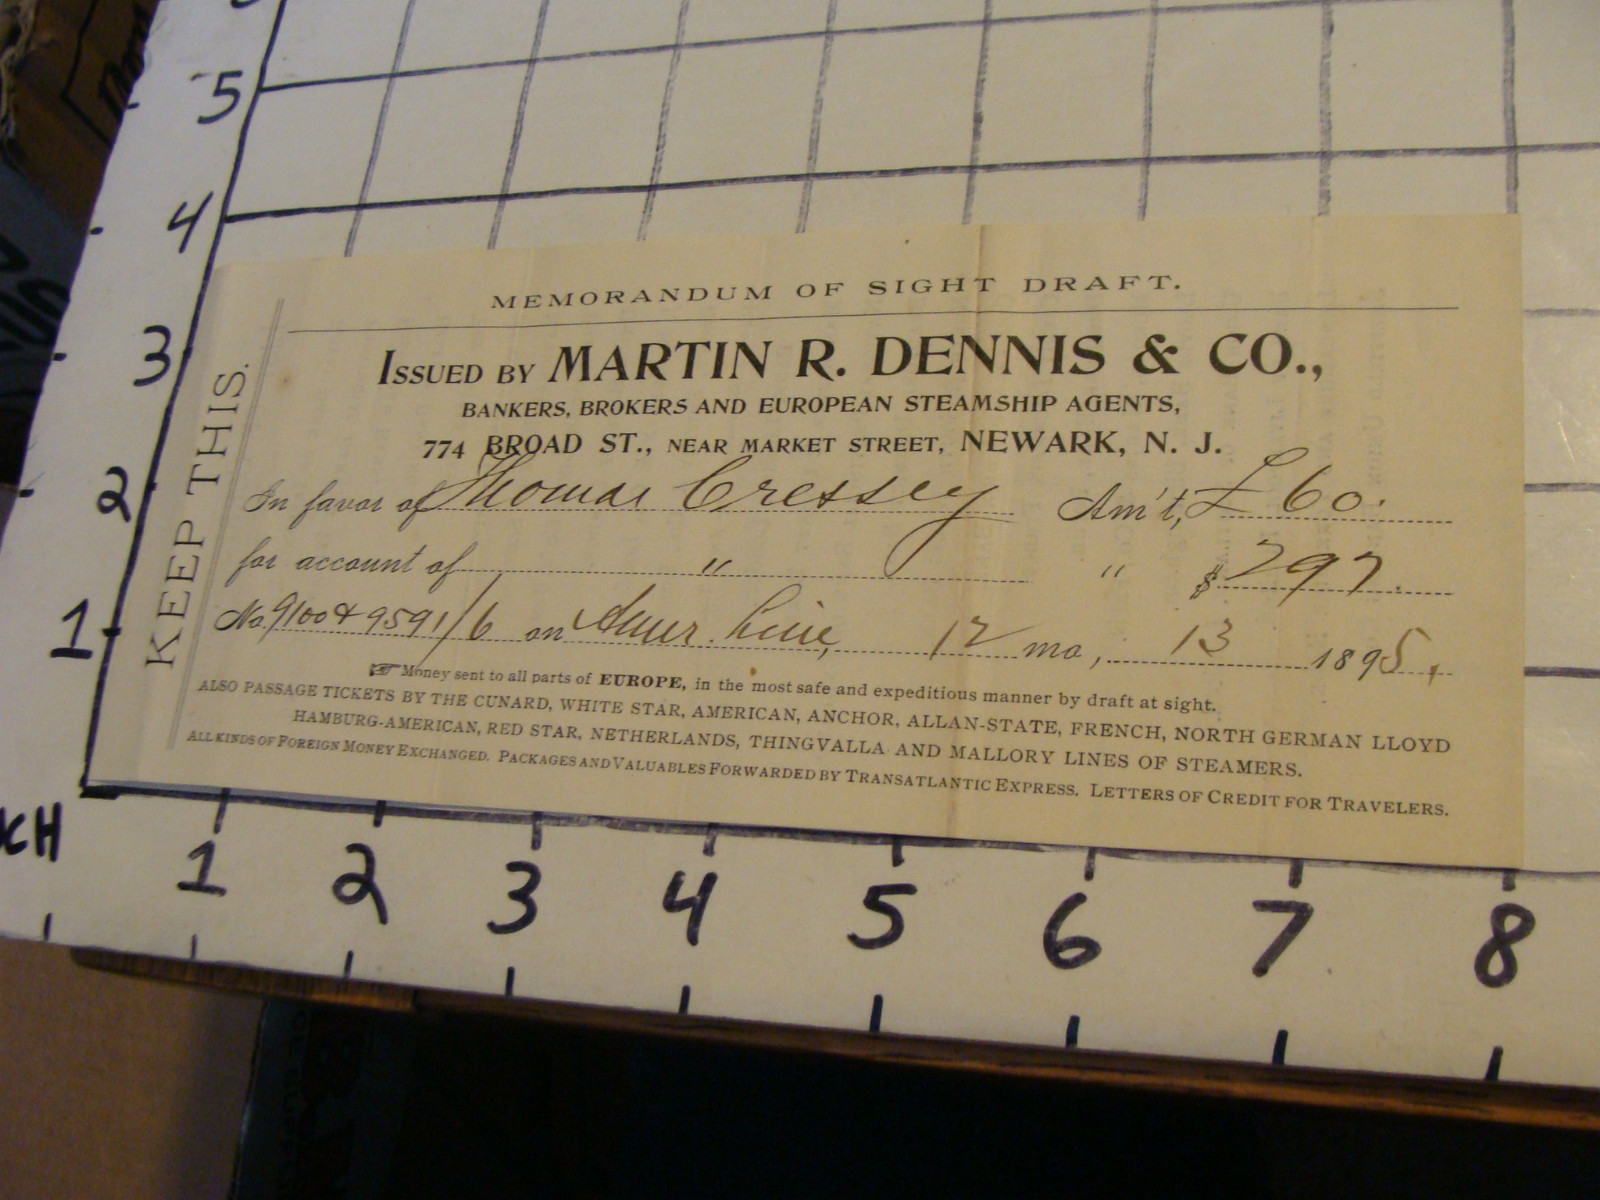 5
4
3
2
1
KEEP THIS.
MEMORANDUM OF SIGHT DRAFT.
ISSUED BY MARTIN R. DENNIS & CO.,
BANKERS, BROKERS AND EUROPEAN STEAMSHIP AGENTS,
774 BROAD ST., NEAR MARKET STREET, NEWARK, N. J.
In favor of Thomas Cressey Am't, £ 60.
for account of " " $ 297.
No. 9100 & 9591/6 on Amer. Line, 12 mo, 13 1895,
☞ Money sent to all parts of EUROPE, in the most safe and expeditious manner by draft at sight.
ALSO PASSAGE TICKETS BY THE CUNARD, WHITE STAR, AMERICAN, ANCHOR, ALLAN-STATE, FRENCH, NORTH GERMAN LLOYD
HAMBURG-AMERICAN, RED STAR, NETHERLANDS, THINGVALLA AND MALLORY LINES OF STEAMERS.
ALL KINDS OF FOREIGN MONEY EXCHANGED. PACKAGES AND VALUABLES FORWARDED BY TRANSATLANTIC EXPRESS. LETTERS OF CREDIT FOR TRAVELERS.
CH 1 2 3 4 5 6 7 8